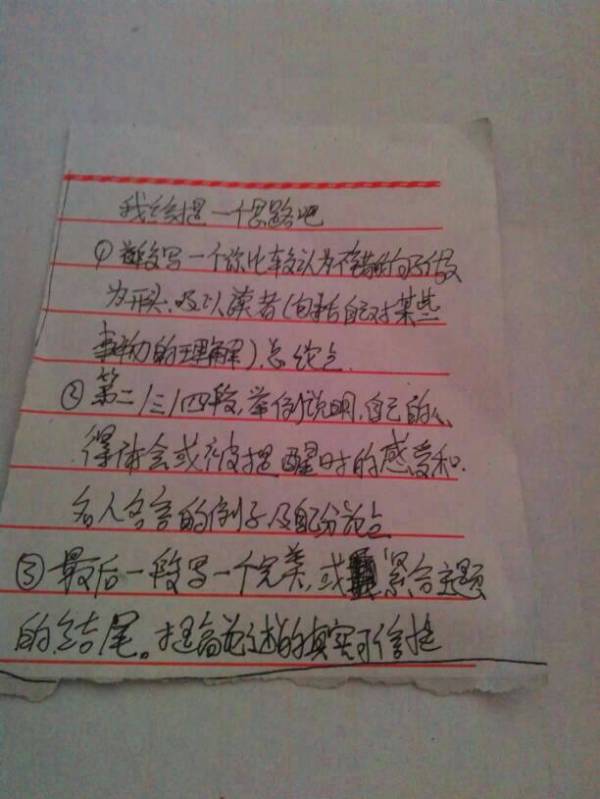 我给提一个思路吧
①首段写一个你比较认为不错的句子做
为开头,及以读者(包括自己对某些
事物的理解),总论点.
②第二/三/四段,举例说明,自己的心
得体会或被提醒时的感受和
名人名言的例子及配分论点
③最后一段写一个完美,或紧合主题
的结尾。提高论述的真实可信度